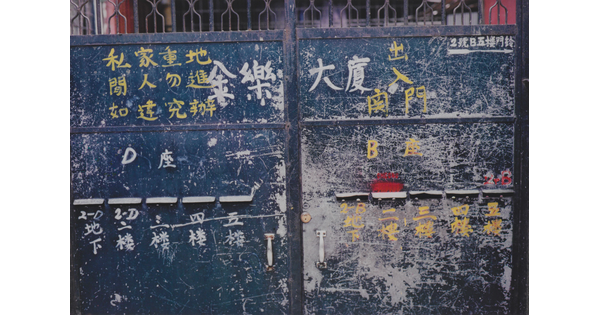 私家重地
閒人勿進
如違究辦
金樂大廈
出入
南門
2號B五樓門鈴
D座
B座
2-D 地下
2-D 二樓
三樓
四樓
五樓
地下
二樓
三樓
四樓
五樓